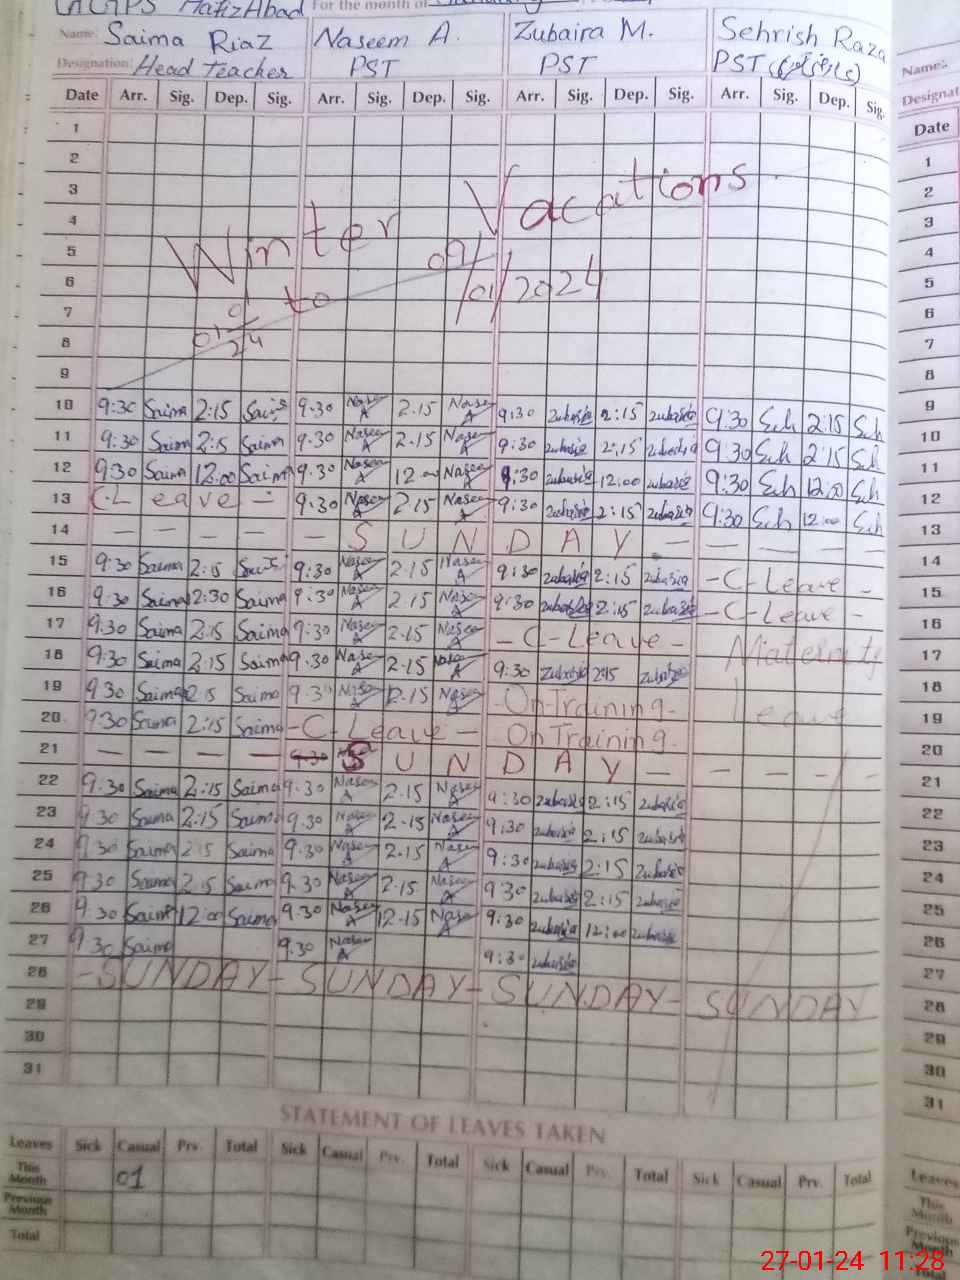 HafizAbad For the month of
Name: Saima Riaz Naseem A. Zubaira M. Sehrish Raza
Designation: Head Teacher PST PST PST
Date Arr. Sig. Dep. Sig. Arr. Sig. Dep. Sig. Arr. Sig. Dep. Sig. Arr. Sig. Dep. Sig.
1
2
3
4
5
6
7
8
9
Winter Vacations
01/01/24 to 09/01/2024
10 9:30 Saima 2:15 Saima 9.30 Naseem A 2.15 Naseem A 9:30 zubaria 2:15 zubaria 9:30 Seh 2:15 Seh
11 9:30 Saima 2:15 Saima 9.30 Naseem A 2.15 Naseem A 9:30 zubaria 2:15 zubaria 9.30 Seh 2:15 Seh
12 9:30 Saima 12:00 Saima 9.30 Naseem A 12.00 Naseem A 9:30 zubaria 12:00 zubaria 9:30 Seh 12:00 Seh
13 C.Leave - 9:30 Naseem A 2.15 Naseem A 9:30 zubaria 2:15 zubaria 9:30 Seh 12:00 Seh
14 - - - - - SUNDAY - - - - -
15 9:30 Saima 2:15 Saima 9.30 Naseem A 2.15 Naseem A 9:30 zubaria 2:15 zubaria -C-Leave-
16 9:30 Saima 2:30 Saima 9:30 Naseem A 2.15 Naseem A 9:30 zubaria 2:15 zubaria -C-Leave-
17 9:30 Saima 2:15 Saima 9:30 Naseem A 2.15 Naseem A -C-Leave- Maternity
18 9:30 Saima 2:15 Saima 9.30 Naseem A 2.15 Naseem A 9:30 zubaria 2:15 zubaria
19 9:30 Saima 2:15 Saima 9.30 Naseem A 2.15 Naseem A -On Training- Leave
20 9:30 Saima 2:15 Saima -C-Leave- On Training.
21 - - - - 9.30 SUNDAY - - - - -
22 9:30 Saima 2:15 Saima 9.30 Naseem A 2.15 Naseem A 9:30 zubaria 2:15 zubaria
23 9:30 Saima 2:15 Saima 9.30 Naseem A 2.15 Naseem A 9:30 zubaria 2:15 zubaria
24 9:30 Saima 2:15 Saima 9.30 Naseem A 2.15 Naseem A 9:30 zubaria 2:15 zubaria
25 9:30 Saima 2:15 Saima 9.30 Naseem A 2.15 Naseem A 9:30 zubaria 2:15 zubaria
26 9:30 Saima 12:00 Saima 9.30 Naseem A 12.15 Naseem A 9:30 zubaria 12:00 zubaria
27 9:30 Saima 9.30 Naseem A 9:30 zubaria
28 -SUNDAY- SUNDAY- SUNDAY- SUNDAY
29
30
31
STATEMENT OF LEAVES TAKEN
Leaves Sick Casual Prv. Total Sick Casual Prv. Total Sick Casual Prv. Total Sick Casual Prv. Total
This Month 01
Previous Month
Total
Name:
Designat
Date
1
2
3
4
5
6
7
8
9
10
11
12
13
14
15
16
17
18
19
20
21
22
23
24
25
26
27
28
29
30
31
Leaves
This Month
Previous Month
Total
27-01-24 11:28